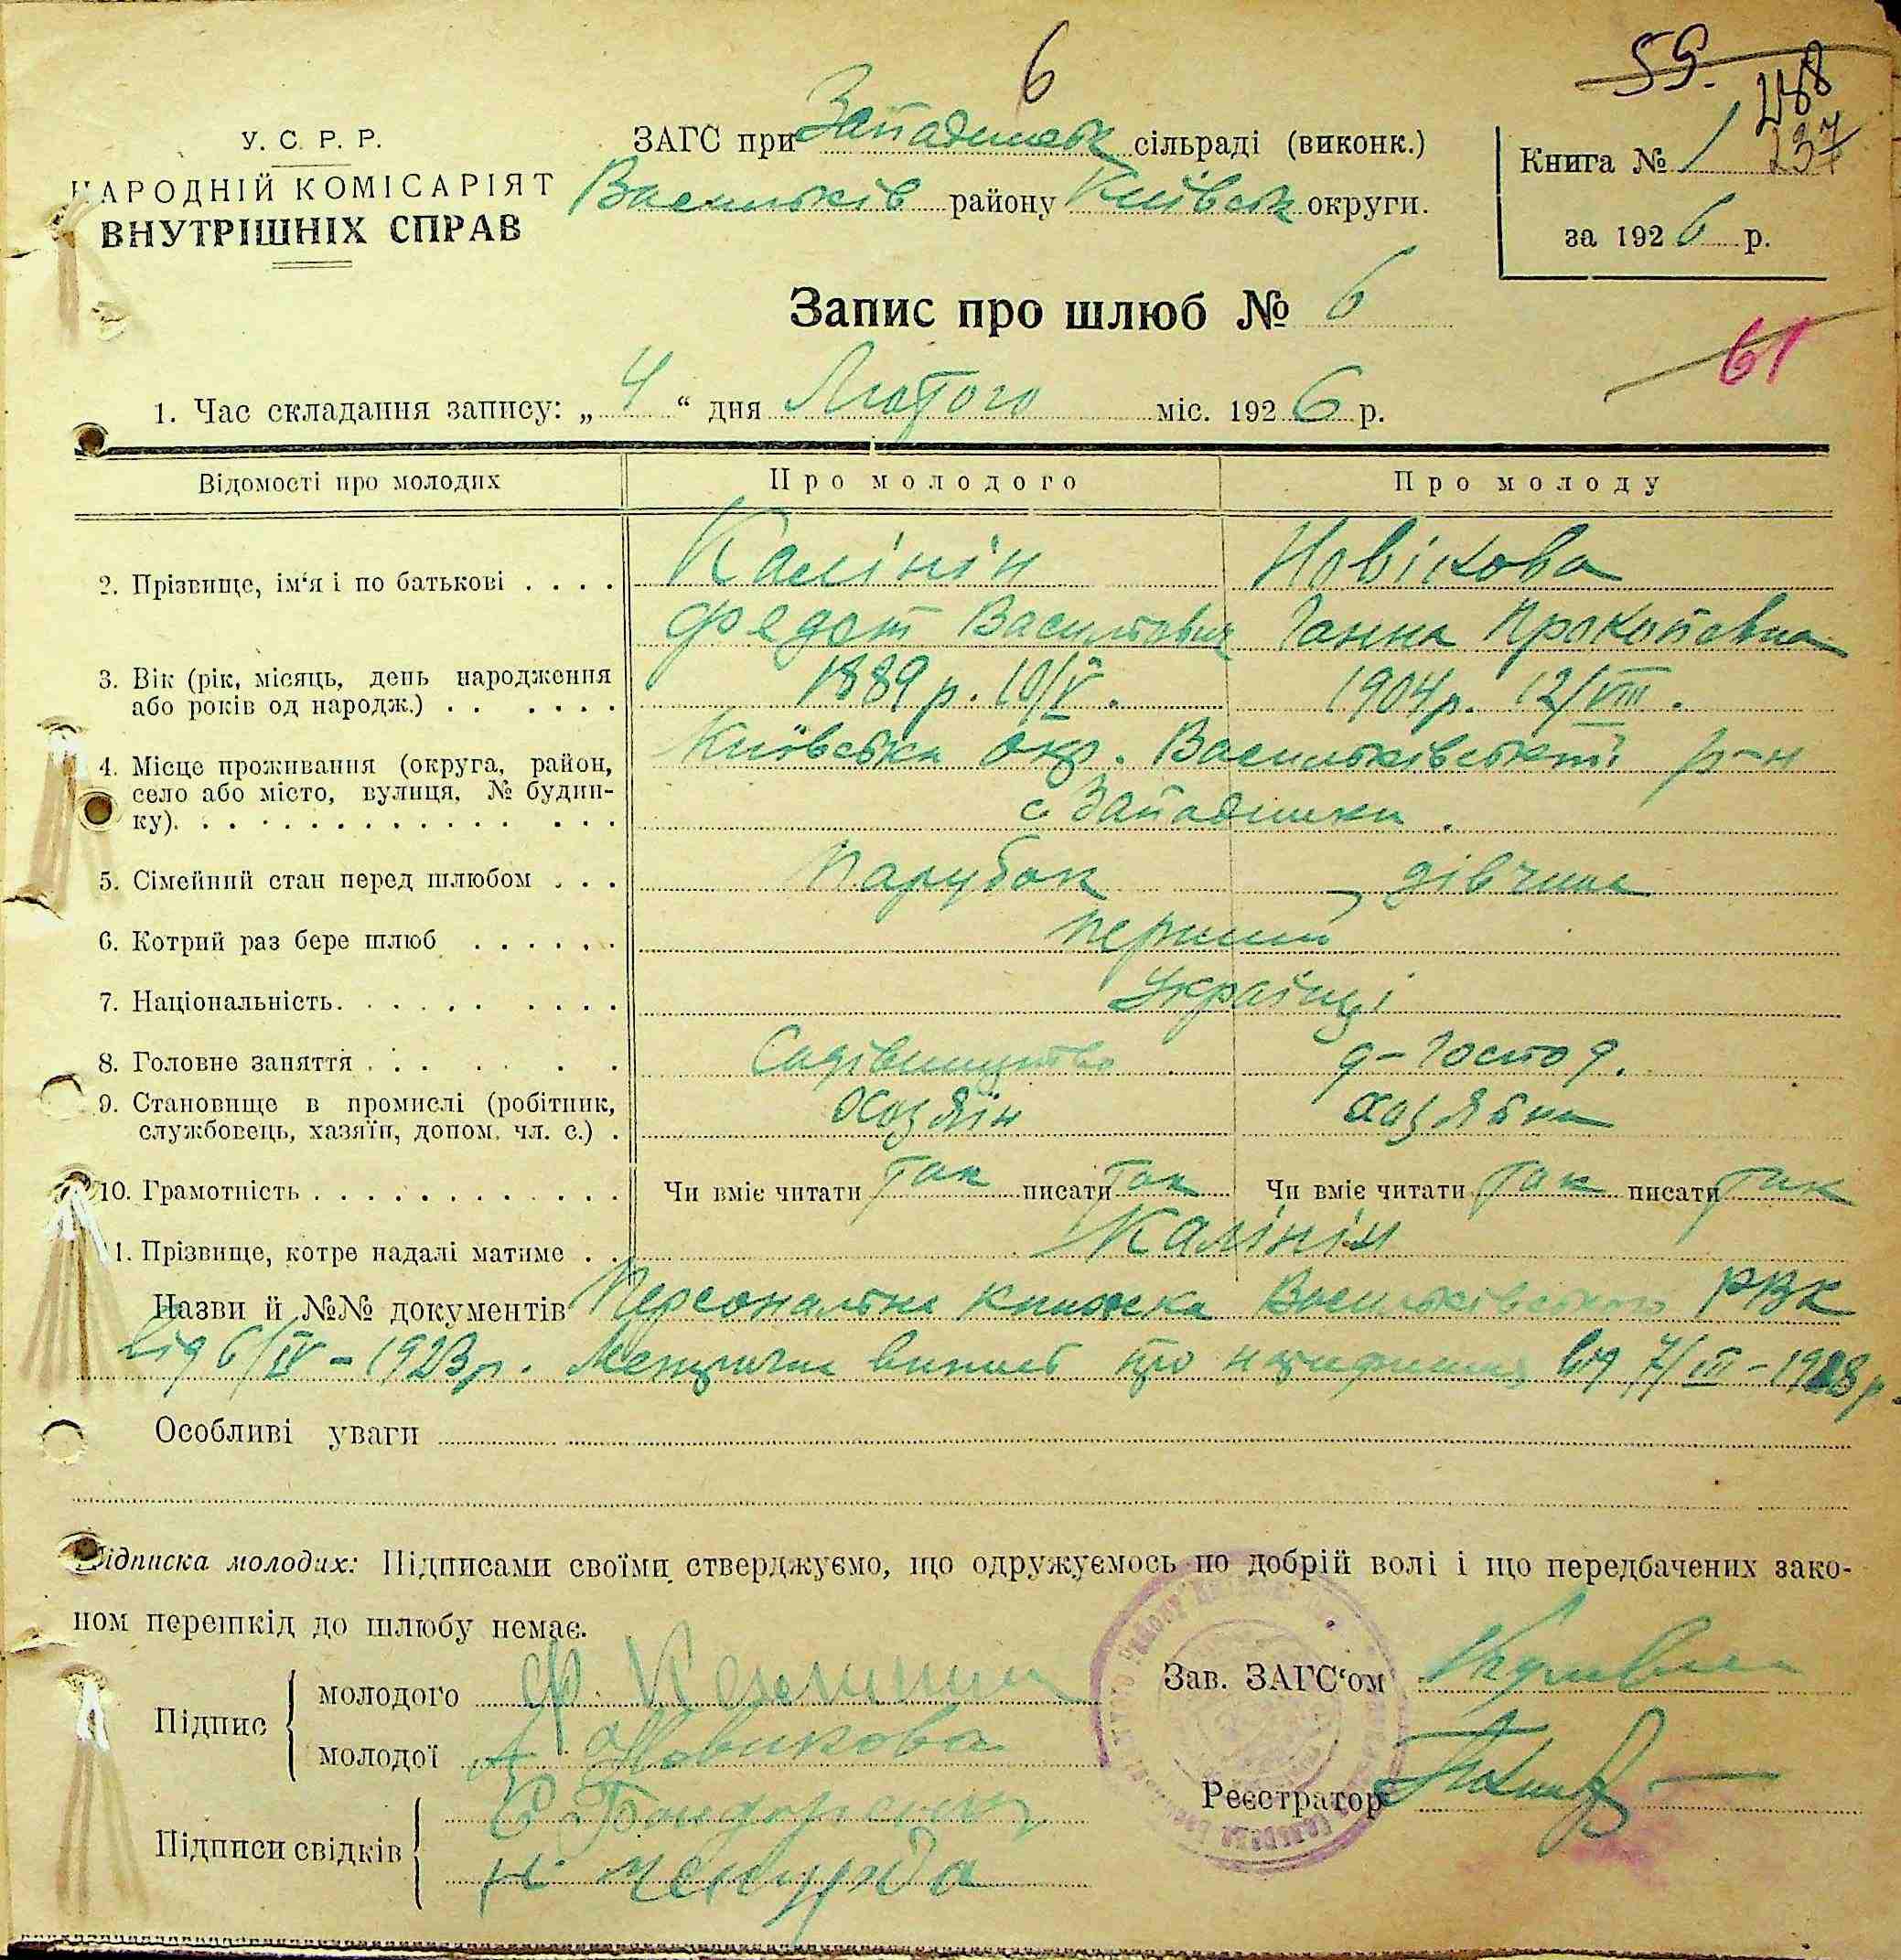 6
59.
248
237
У. С. Р. Р.
НАРОДНІЙ КОМІСАРІЯТ
ВНУТРІШНІХ СПРАВ
ЗАГС при Западинськ сільраді (виконк.)
Васильків району Київськ округи.
Книга № 1
за 1926 р.
Запис про шлюб № 6
61
1. Час складання запису: „4“ дня Лютого міс. 1926 р.
Відомості про молодих Про молодого Про молоду
2. Прізвище, ім‘я і по батькові . . . . Калінін Новікова
Федот Васильович Ганна Прокопівна
3. Вік (рік, місяць, день народження або років од народж.) . . . . . . 1889 р. 10/V. 1904 р. 12/VIII.
4. Місце проживання (округа, район, село або місто, вулиця, № будинку). Київська окр. Васильківський р-н
с. Западинка.
5. Сімейний стан перед шлюбом . . . Парубок дівчина
6. Котрий раз бере шлюб . . . . . . перший
7. Національність. . . . . . . . . Українці
8. Головне заняття . . . . . . . Садівництво д-господ.
9. Становище в промислі (робітник, службовець, хазяїн, допом. чл. с.) . Хозяїн Хозяйка
10. Грамотність . . . . . . . . . . . . Чи вміє читати так писати так Чи вміє читати так писати так
11. Прізвище, котре надалі матиме . . Калінін
Назви й №№ документів Персональна книжка Васильківського РВК
від 6/IV – 1923 р. Метрична випись про народження від 7/III –
Особливі уваги
Підписка молодих: Підписами своїми стверджуємо, що одружуємось по добрій волі і що передбачених зако-
ном перешкід до шлюбу немає.
Підпис
молодого Ф. Калинин
молодої А Новикова
Зав. ЗАГС‘ом
Реєстратор
Підписи свідків
Бондаренко